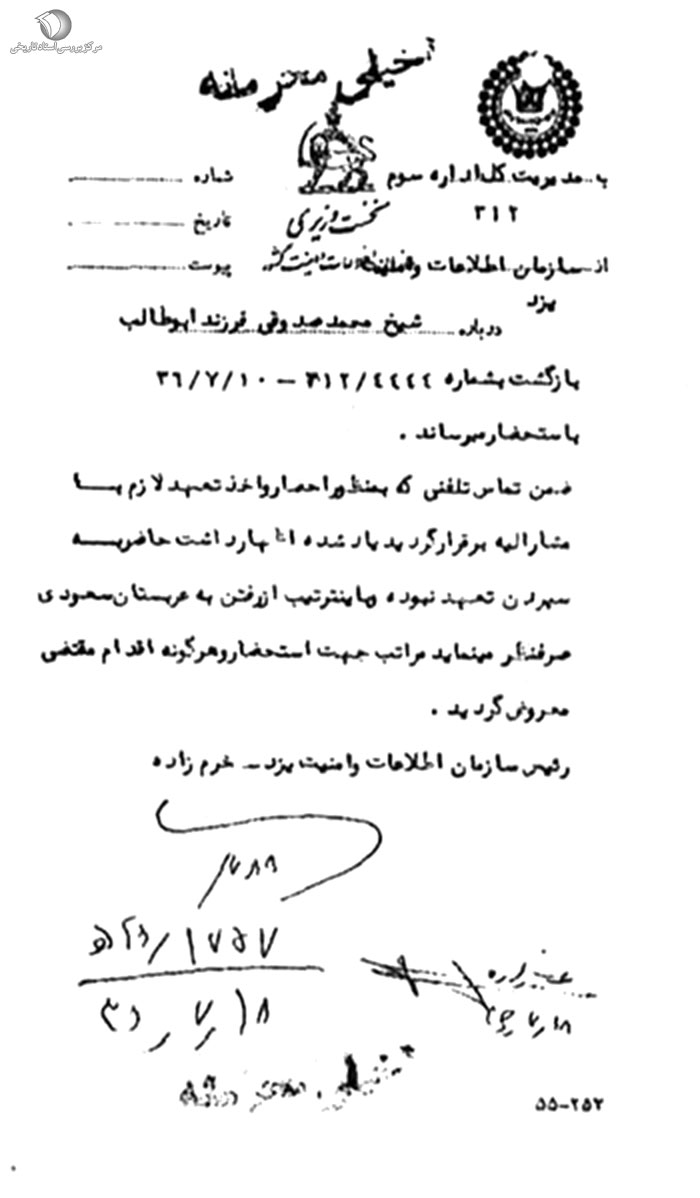 مرکز بررسی اسناد تاریخی
خیلی محرمانه
به مدیریت کل اداره سوم
۳۱۲
شماره
نخست وزیری
تاریخ
از سازمان اطلاعات و امنیت
سازمان اطلاعات و امنیت کشور
پیوست
یزد
درباره شیخ محمد صدوقی فرزند ابوطالب
بازگشت بشماره ۳۱۲/۴۴۴۴ – ۳۶/۷/۱۰
باستحضار میرساند .
ضمن تماس تلفنی که بمنظور احضار و اخذ تعهد لازم با
مشارالیه برقرار گردید یاد شده اظهار داشت حاضر به
سپردن تعهد نبوده و باینترتیب از رفتن به عربستان سعودی
صرفنظر مینماید مراتب جهت استحضار و هرگونه اقدام مقتضی
معروض گردید .
رئیس سازمان اطلاعات و امنیت یزد – خرم زاده
۵۵–۲۵۲